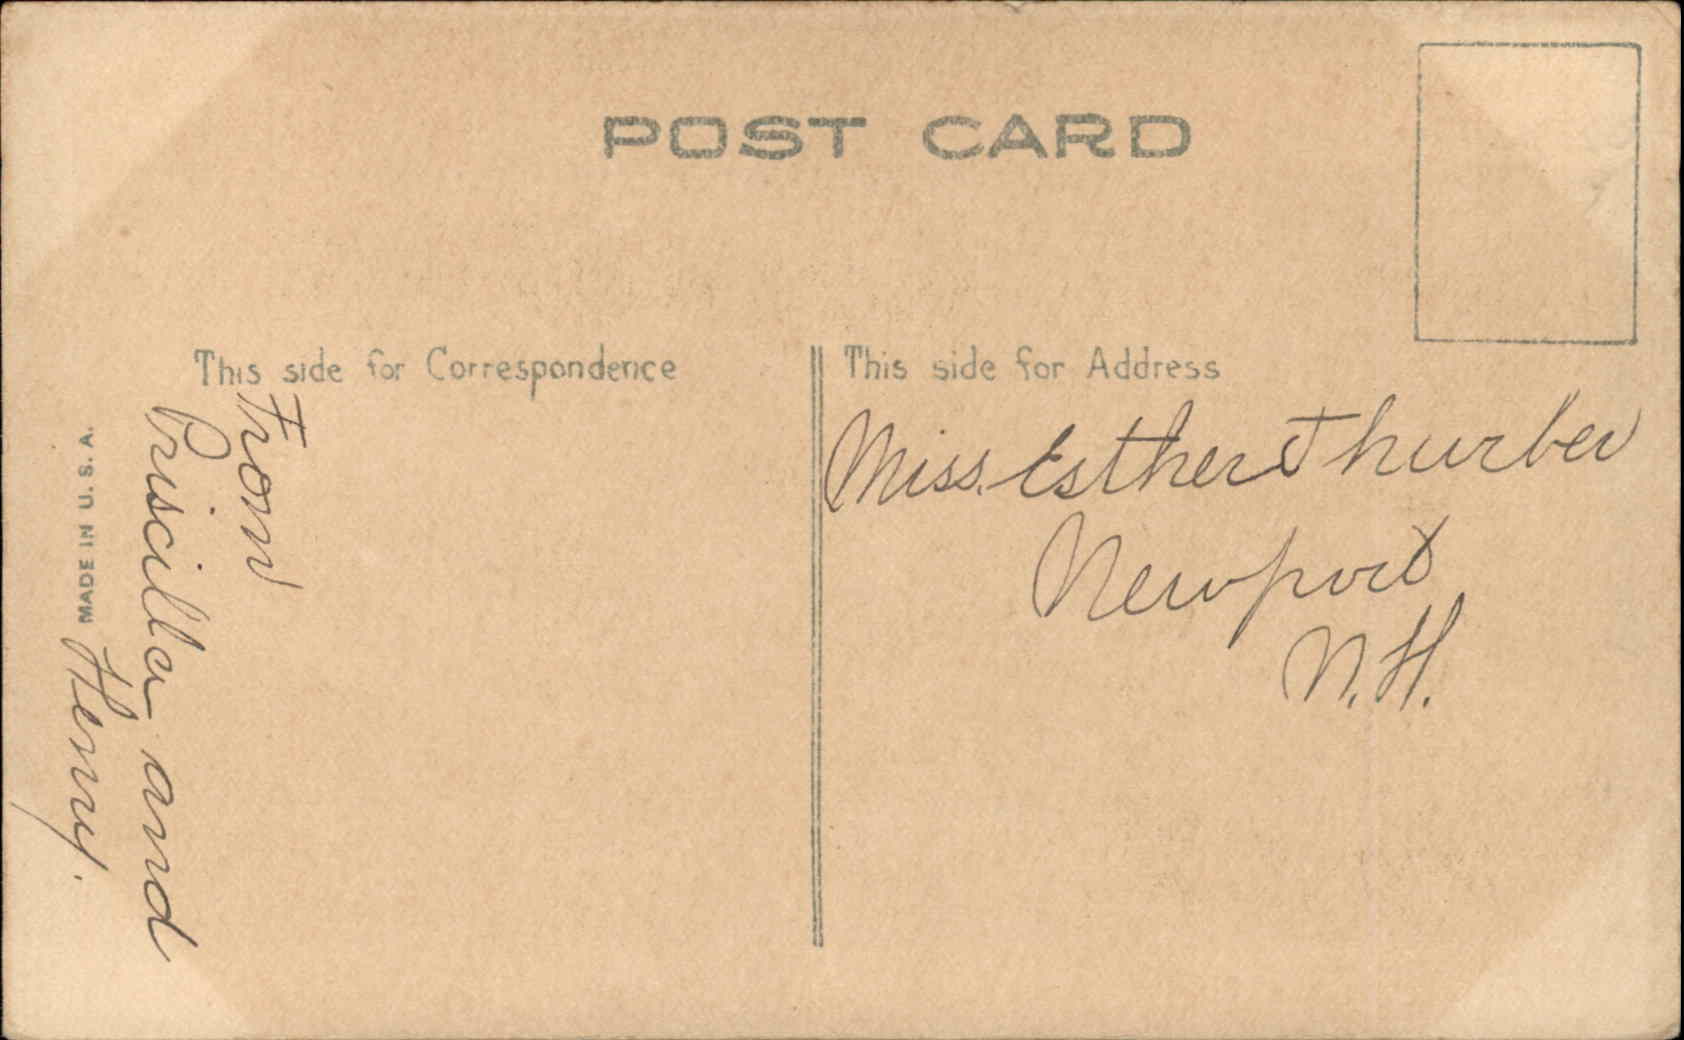 POST CARD
This side for Correspondence
This side for Address
MADE IN U.S.A.
From
Priscilla and
Henry.
Miss. Esther Thurber
Newport
N.H.